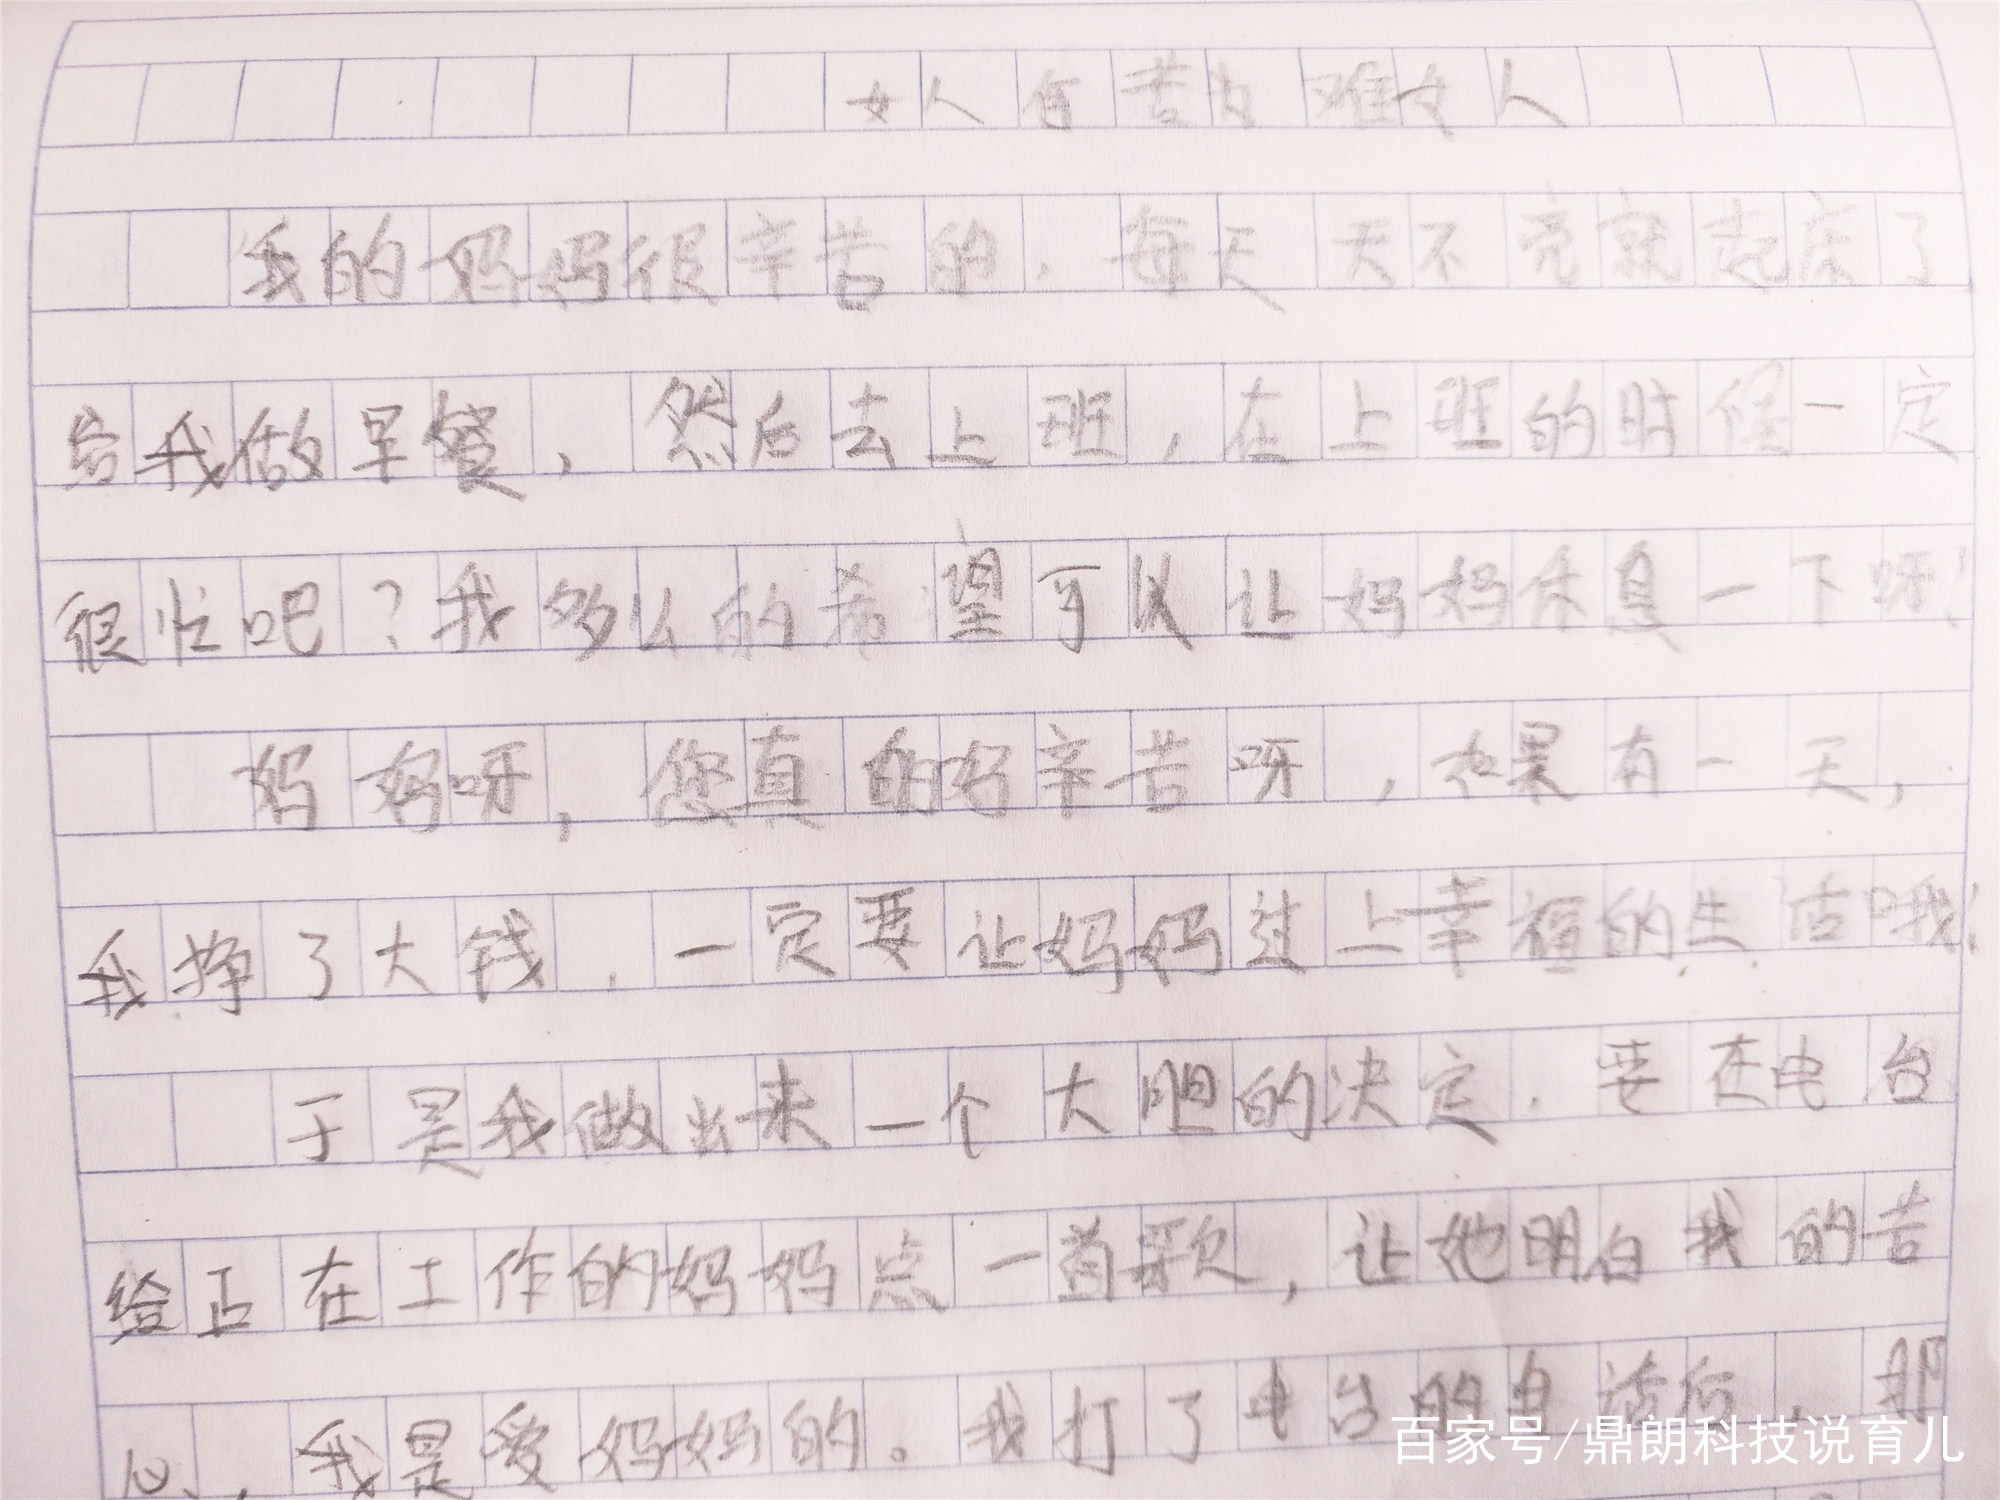 女人何苦为难女人
我的妈妈很辛苦的,每天天不亮就起床了
给我做早餐,然后去上班,在上班的时候一定
很忙吧?我多么的希望可以让妈妈休息一下呀!
妈妈呀,您真的好辛苦呀,如果有一天,
我挣了大钱,一定要让妈妈过上幸福的生活哦!
于是我做出来一个大胆的决定,要在电台
给正在工作的妈妈点一首歌,让她明白我的苦
心,我是爱妈妈的。我打了电台的电话后,那
百家号/鼎朗科技说育儿